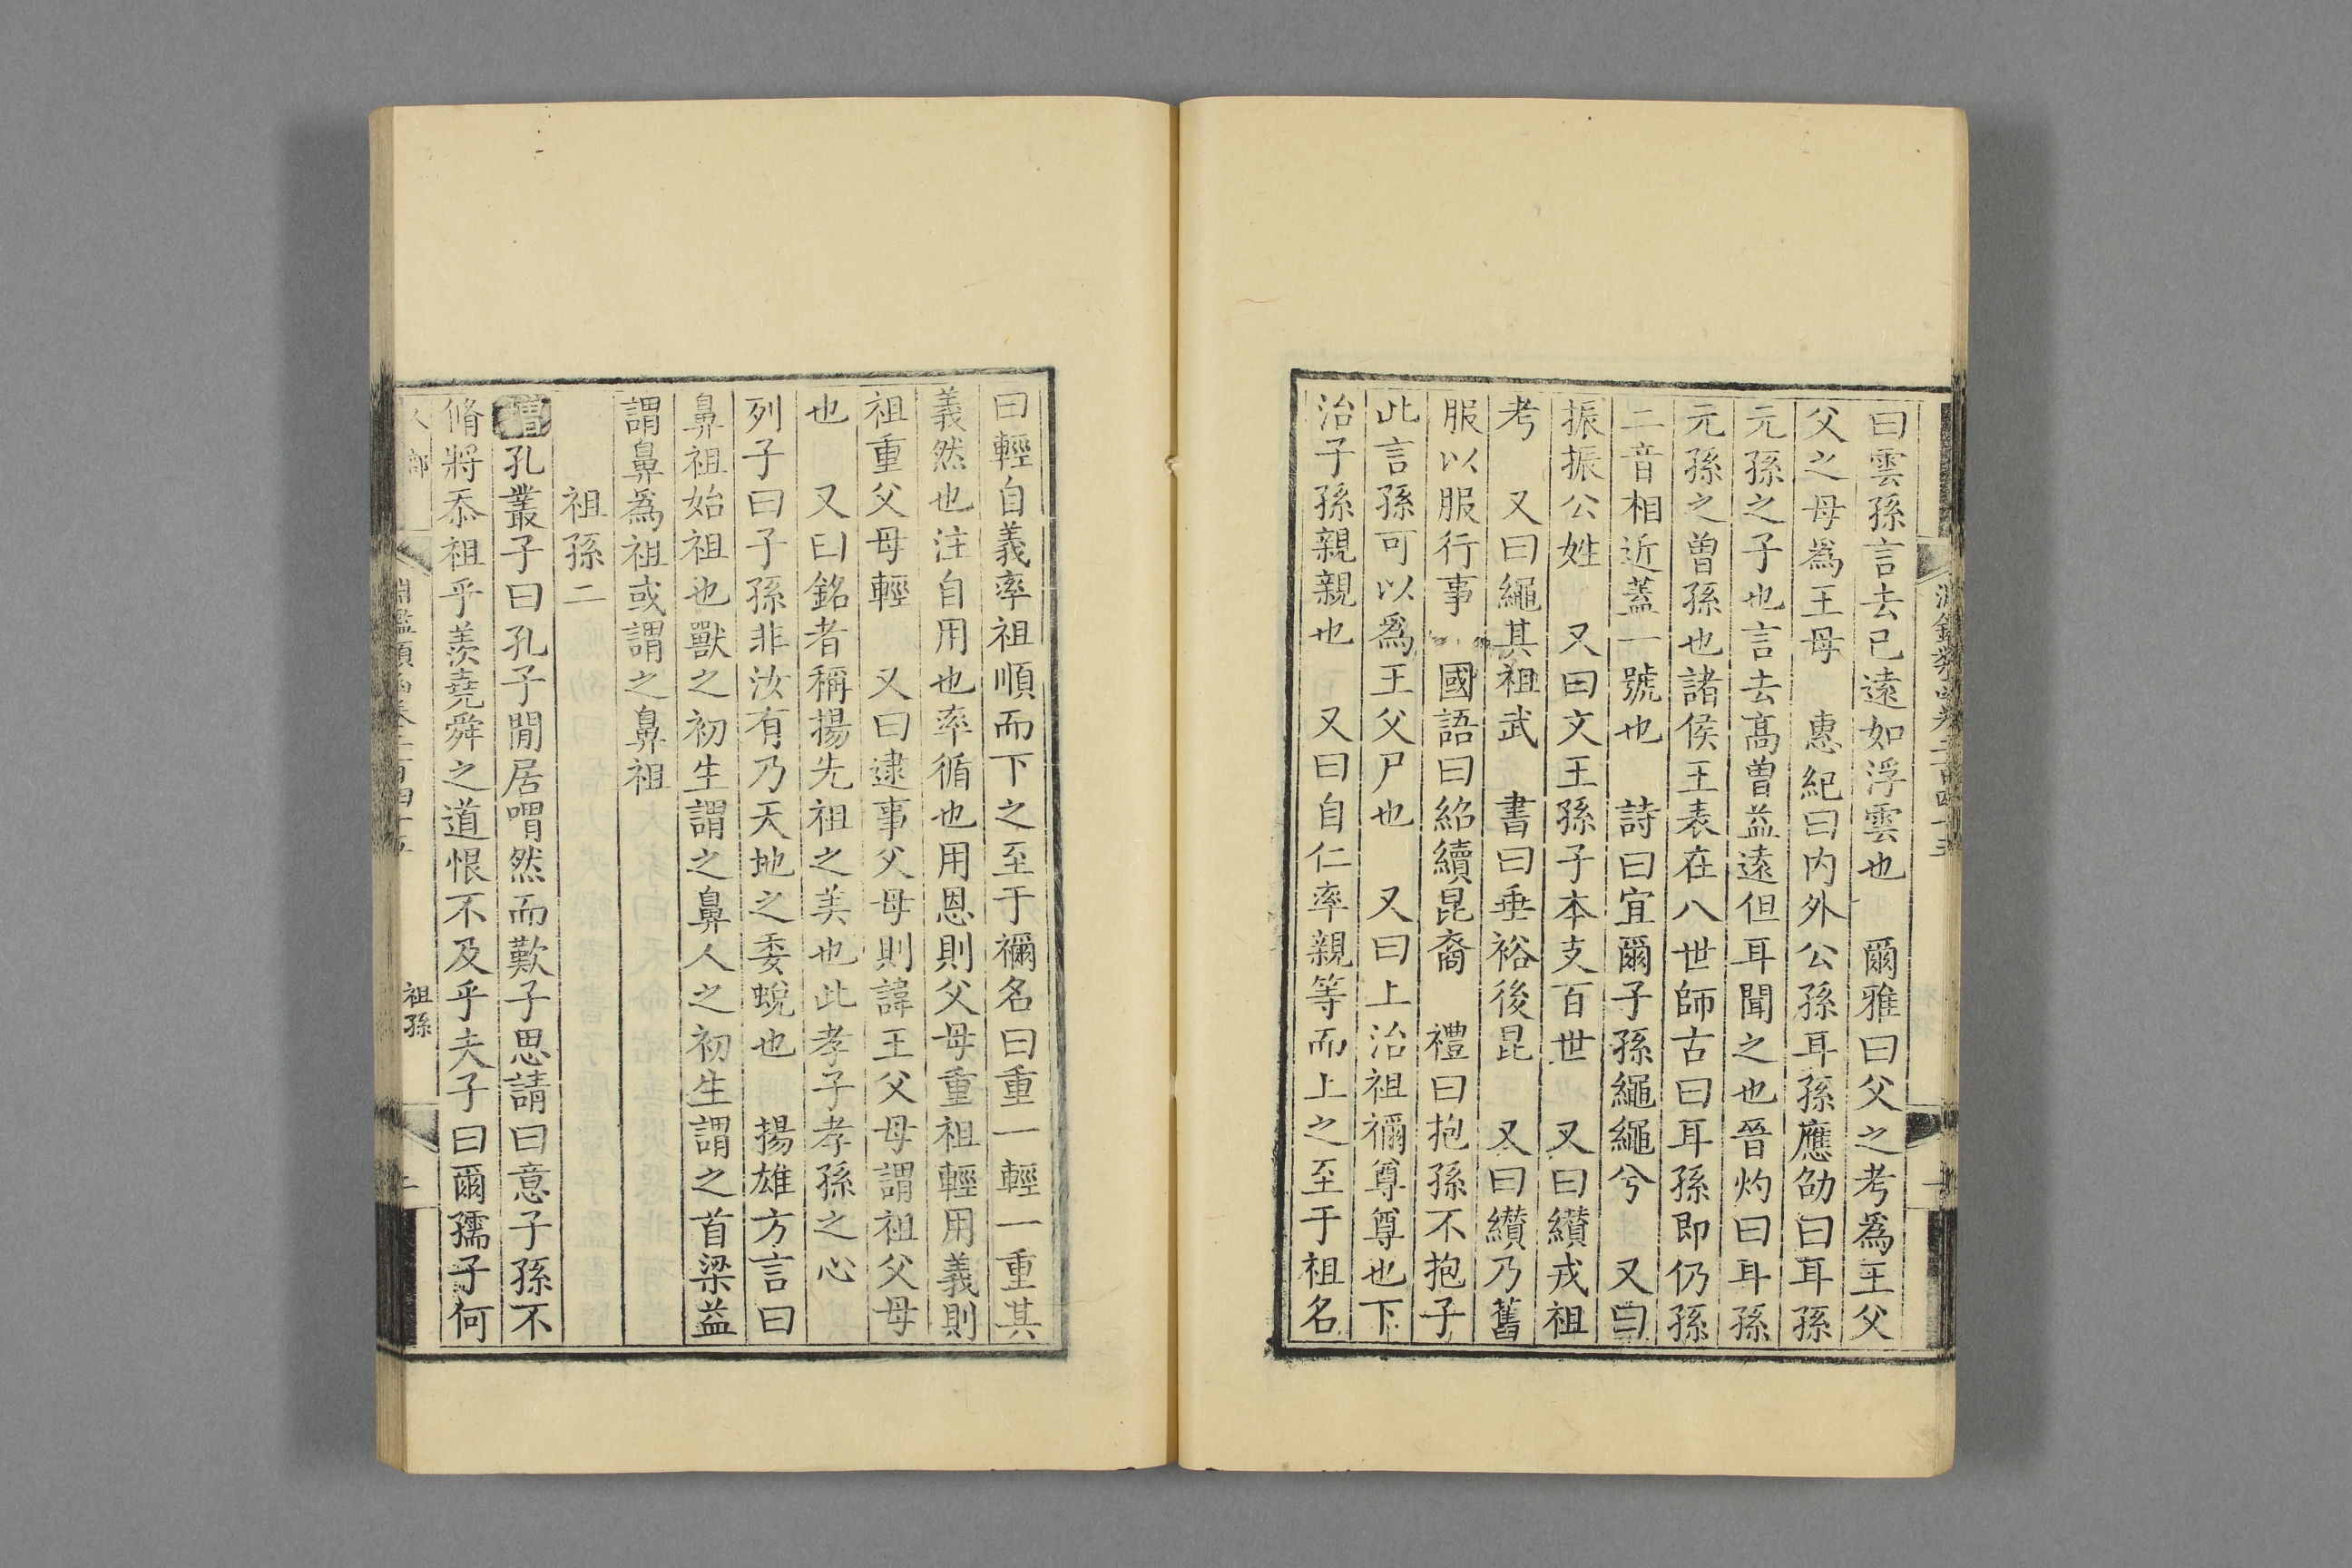 曰雲孫言去已遠如浮雲也　爾雅曰父之考爲王父
父之母爲王母　惠紀曰内外公孫耳孫應劭曰耳孫
元孫之子也言去高曾益遠但耳聞之也晉灼曰耳孫
元孫之曾孫也諸侯王表在八世師古曰耳孫即仍孫
二音相近蓋一號也　詩曰宜爾子孫繩繩兮　又曰
振振公姓　又曰文王孫子本支百世　又曰纘戎祖
考　又曰繩其祖武　書曰垂裕後昆　又曰纘乃舊
服以服行事　國語曰紹續昆裔　禮曰抱孫不抱子
此言孫可以爲王父尸也　又曰上治祖禰尊尊也下
治子孫親親也　又曰自仁率親等而上之至于祖名
曰輕自義率祖順而下之至于禰名曰重一輕一重其
義然也注自用也率循也用恩則父母重祖輕用義則
祖重父母輕　又曰逮事父母則諱王父母謂祖父母
也　又曰銘者稱揚先祖之美也此孝子孝孫之心
列子曰子孫非汝有乃天地之委蛻也　揚雄方言曰
鼻祖始祖也獸之初生謂之鼻人之初生謂之首梁益
謂鼻爲祖或謂之鼻祖
祖孫二
增孔叢子曰孔子閒居喟然而歎子思請曰意子孫不
脩將忝祖乎羨堯舜之道恨不及乎夫子曰爾孺子何
祖孫